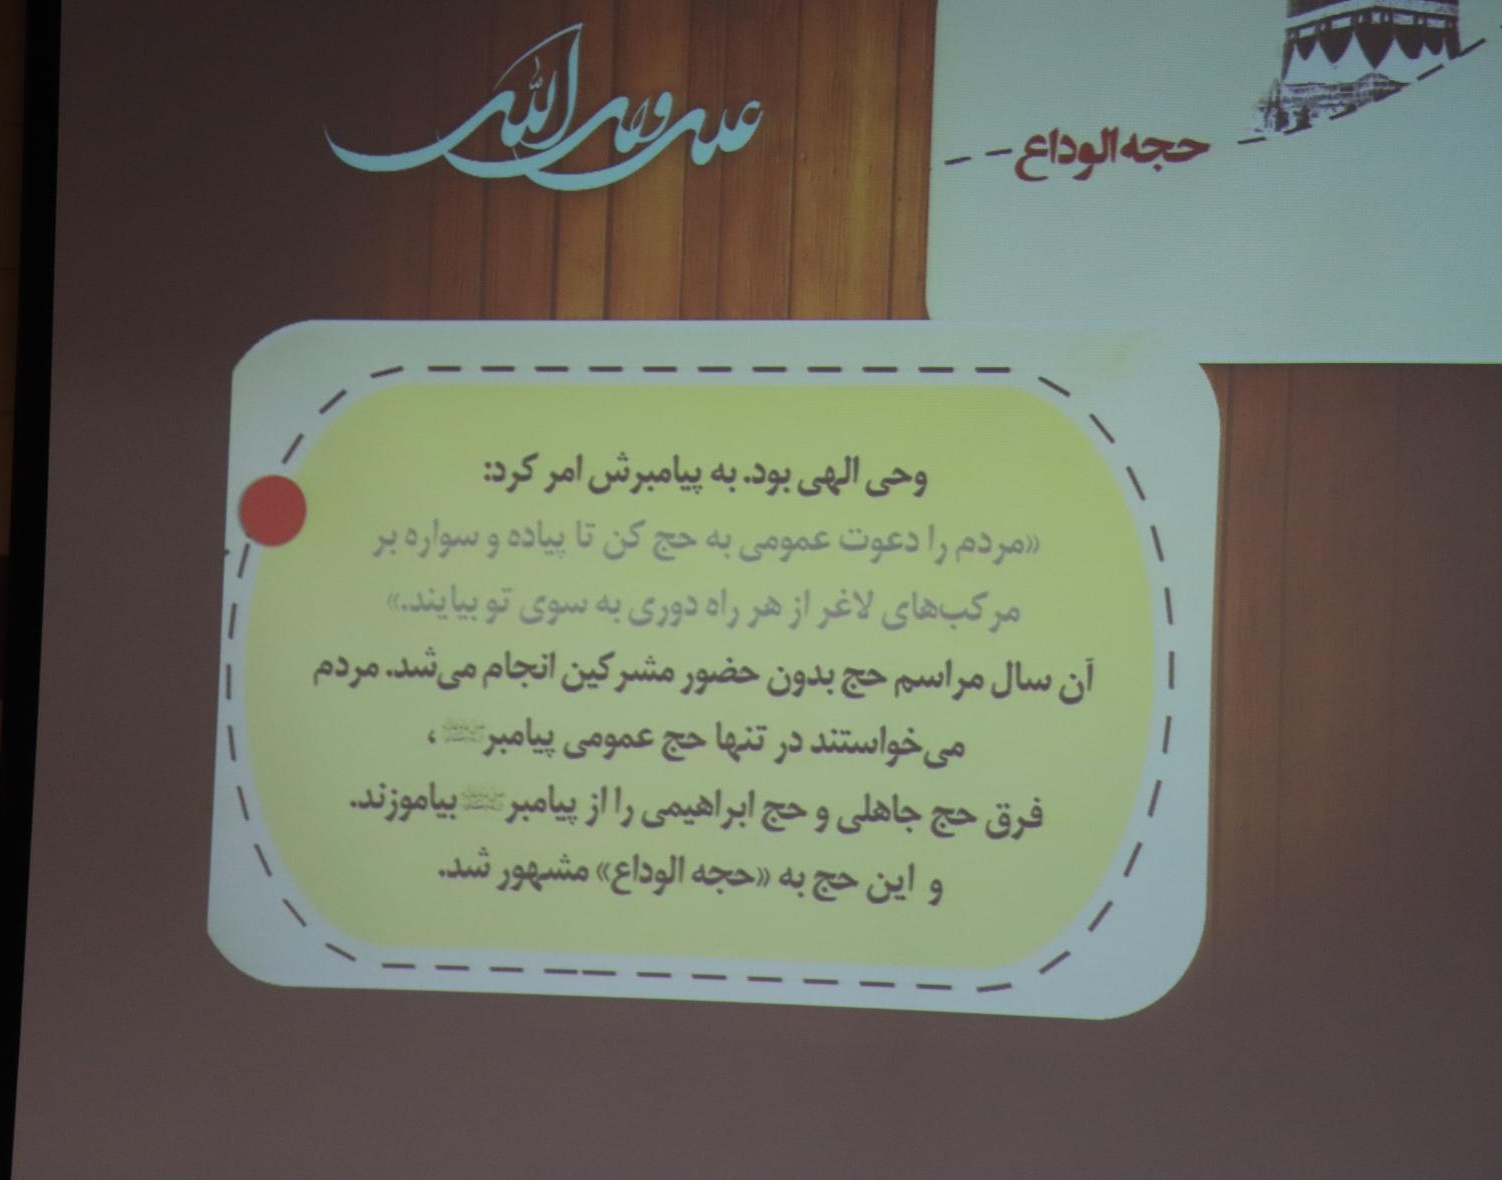 علی ولی الله
حجه الوداع
وحی الهی بود. به پیامبرش امر کرد:
«مردم را دعوت عمومی به حج کن تا پیاده و سواره بر
مرکب‌های لاغر از هر راه دوری به سوی تو بیایند.»
آن سال مراسم حج بدون حضور مشرکین انجام می‌شد. مردم
می‌خواستند در تنها حج عمومی پیامبر ﷺ،
فرق حج جاهلی و حج ابراهیمی را از پیامبر ﷺ بیاموزند.
و این حج به «حجه الوداع» مشهور شد.